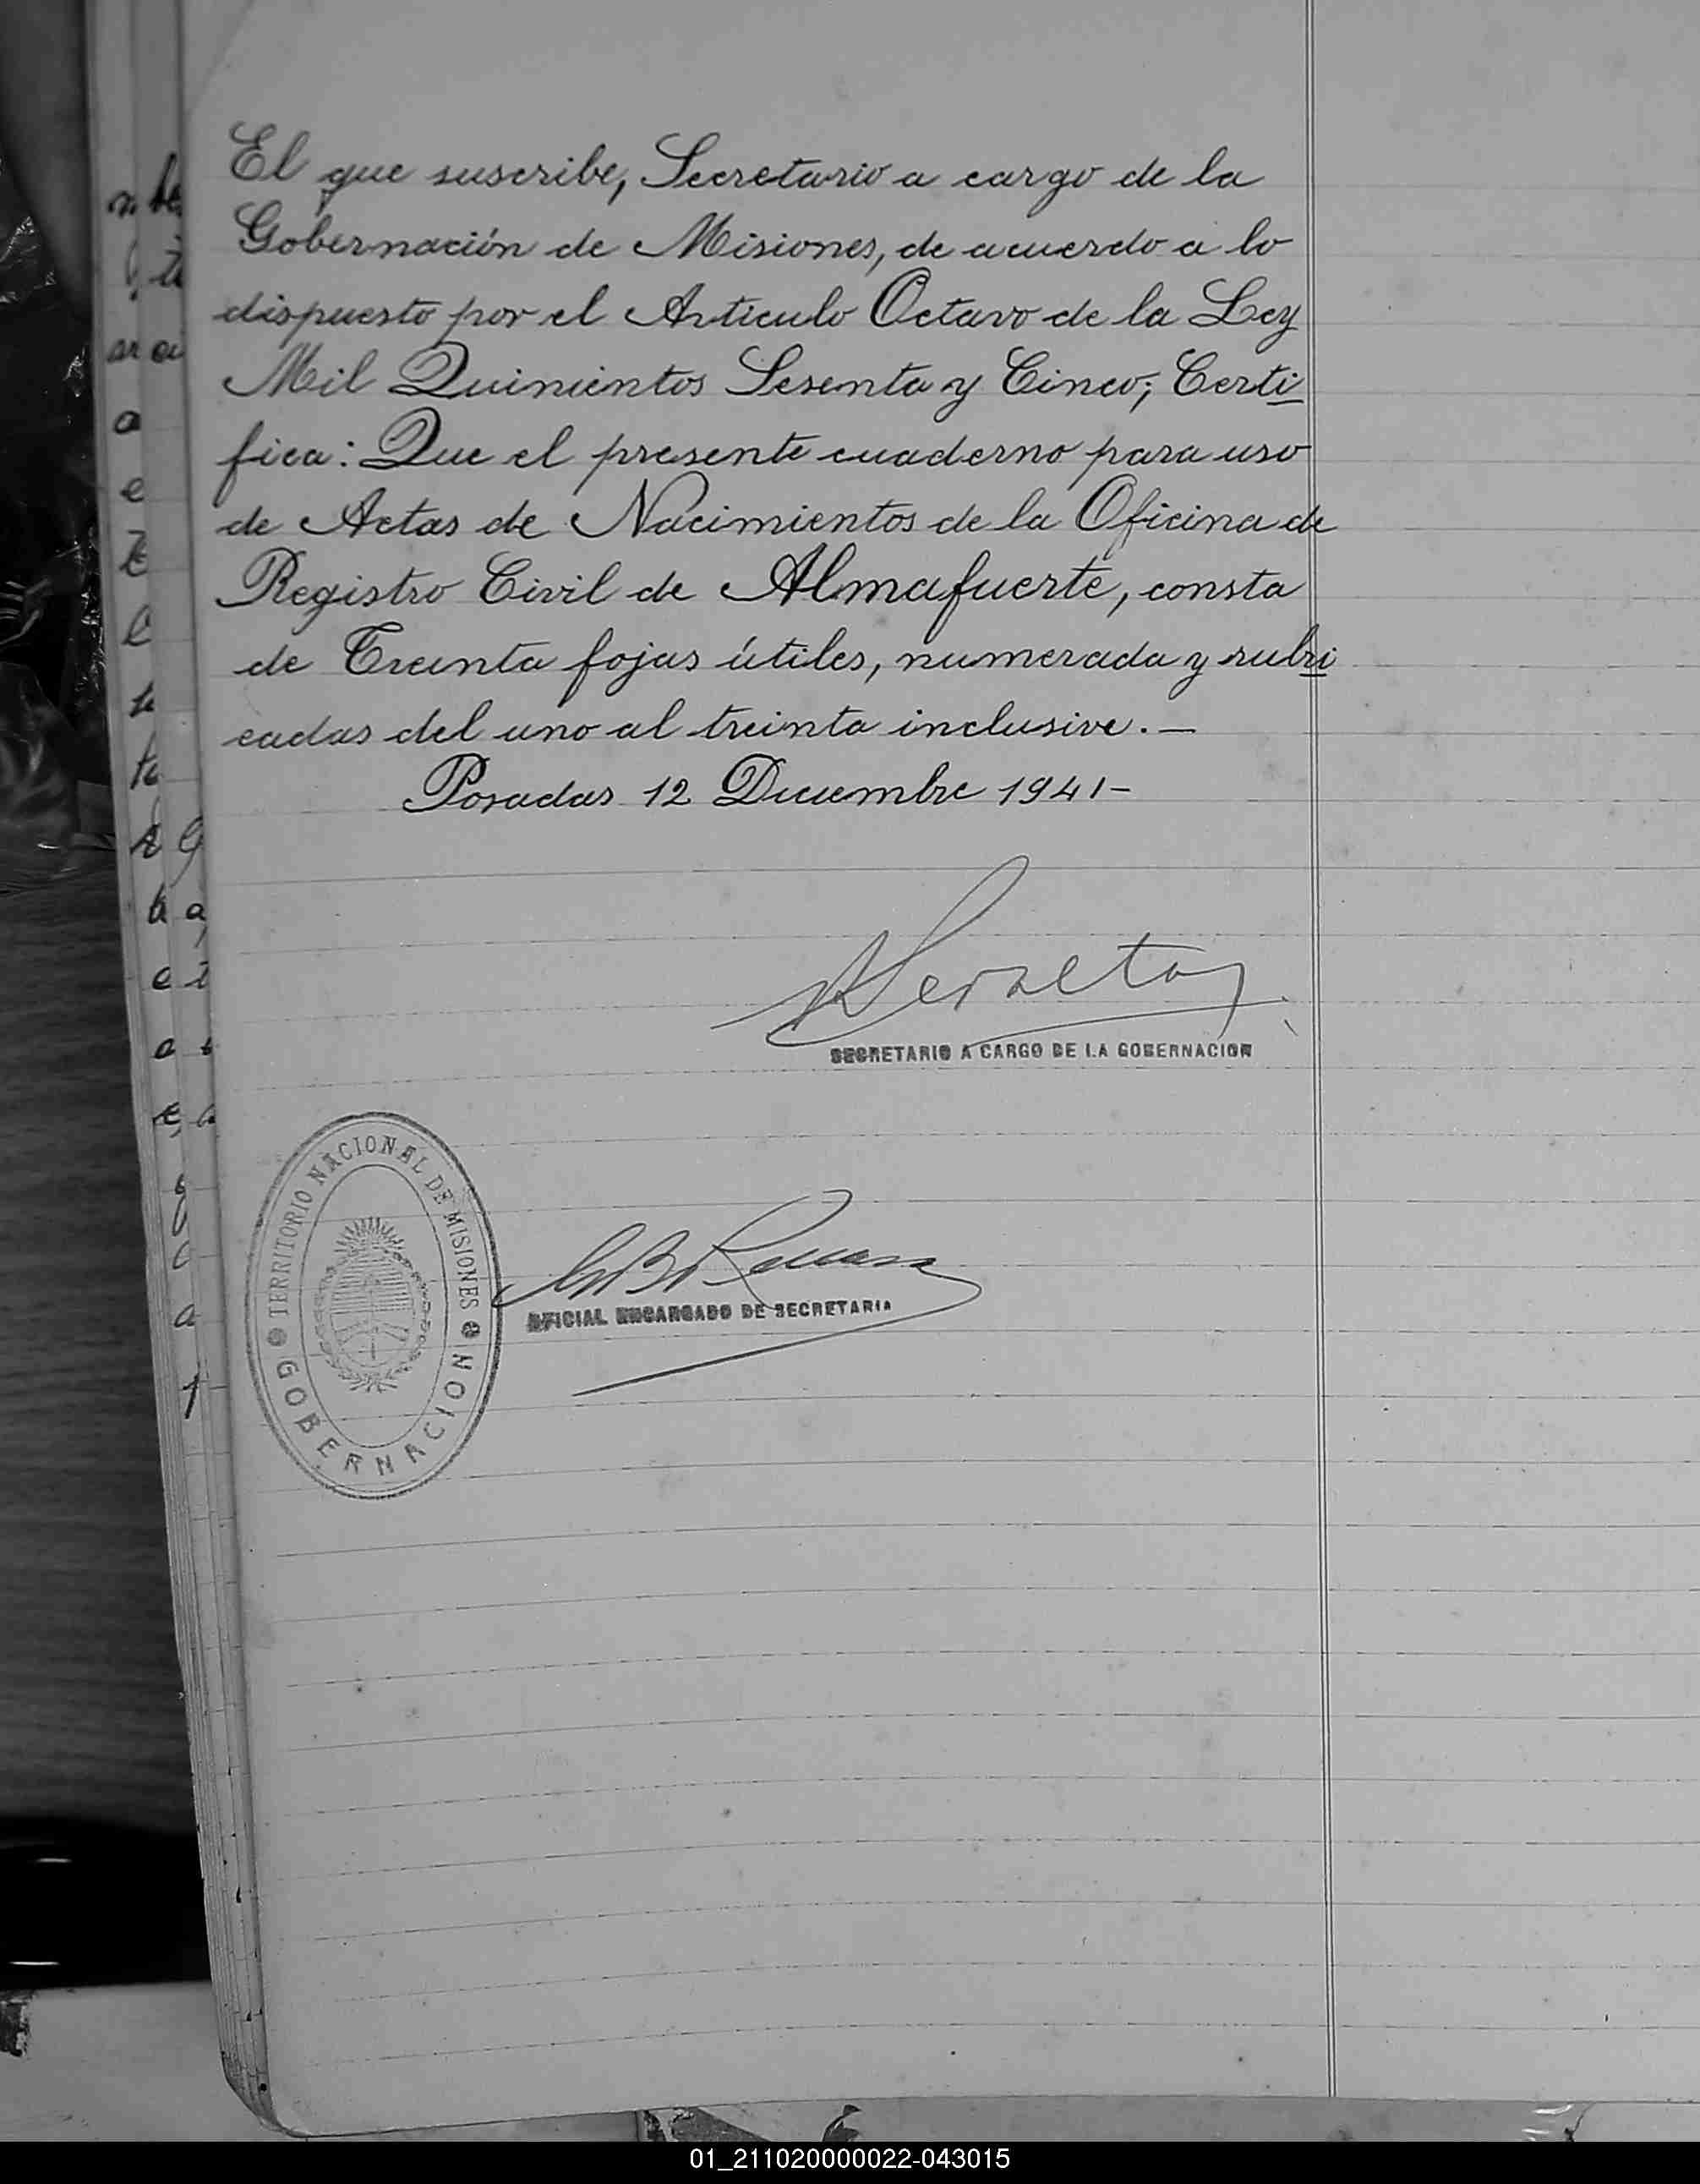 El que suscribe, Secretario a cargo de la
Gobernación de Misiones, de acuerdo a lo
dispuesto por el Artículo Octavo de la Ley
Mil Quinientos Sesenta y Cinco; Certi
fica: Que el presente cuaderno para uso
de Actas de Nacimientos de la Oficina de
Registro Civil de Almafuerte, consta
de Treinta fojas útiles, numerada y rubri
cadas del uno al treinta inclusive.—
Posadas 12 Diciembre 1941-
SECRETARIO A CARGO DE LA GOBERNACION
TERRITORIO NACIONAL DE MISIONES
GOBERNACION
OFICIAL ENCARGADO DE SECRETARIA
01_211020000022-043015